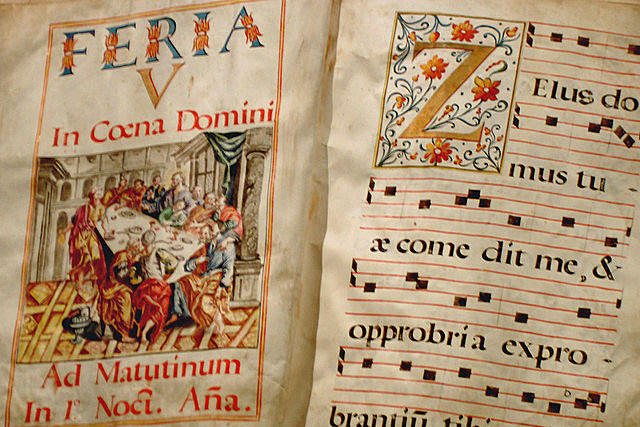 FERIA
V
In Cœna Domini
Ad Matutinum
In 1º Noct. Aña.
Z
Elus do
mus tu
æ come dit me, &
opprobria expro -
brantiū tibi